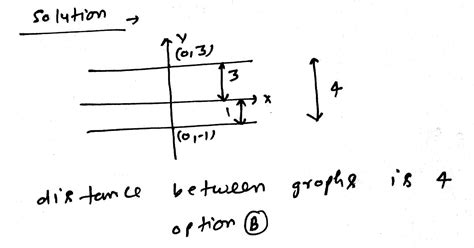 Solution →
Y
(0,3)
3
X
4
1
(0,-1)
distance between graphs is 4
option B